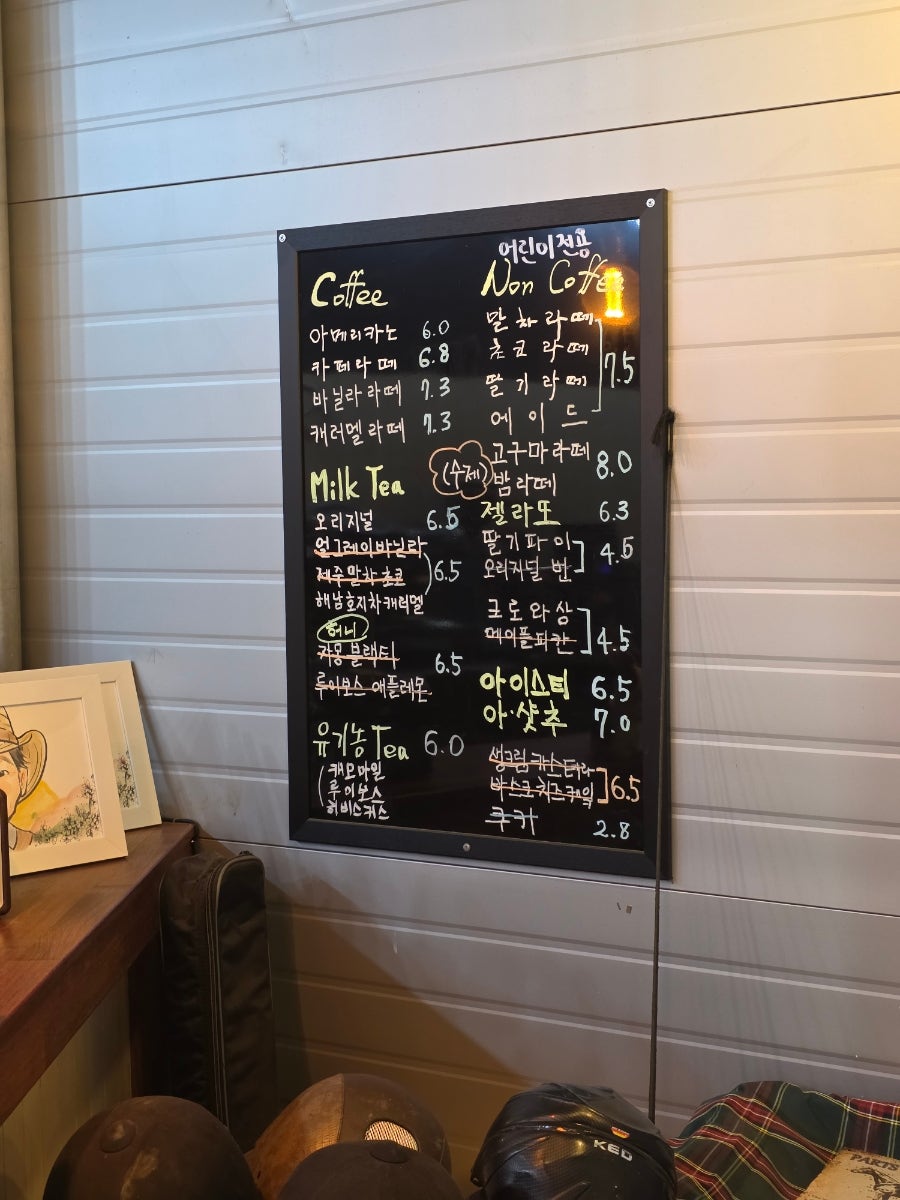 Coffee
아메리카노 6.0
카페라떼 6.8
바닐라라떼 7.3
캐러멜라떼 7.3
Milk Tea
오리지널 6.5
얼그레이바닐라
제주말차초코
해남호지차캐러멜
6.5
허니
자몽블랙티
루이보스 애플레몬
6.5
유기농 Tea 6.0
캐모마일
루이보스
히비스커스
어린이전용
Non Coffee
말차라떼
초코라떼
딸기라떼
에이드
7.5
(수제)
고구마라떼
밤라떼
8.0
젤라또 6.3
딸기파이
오리지널 번
4.5
크로와상
메이플피칸
4.5
아이스티 6.5
아·샷추 7.0
생크림카스테라
바스크치즈케익
6.5
쿠키 2.8
KED
PARTS